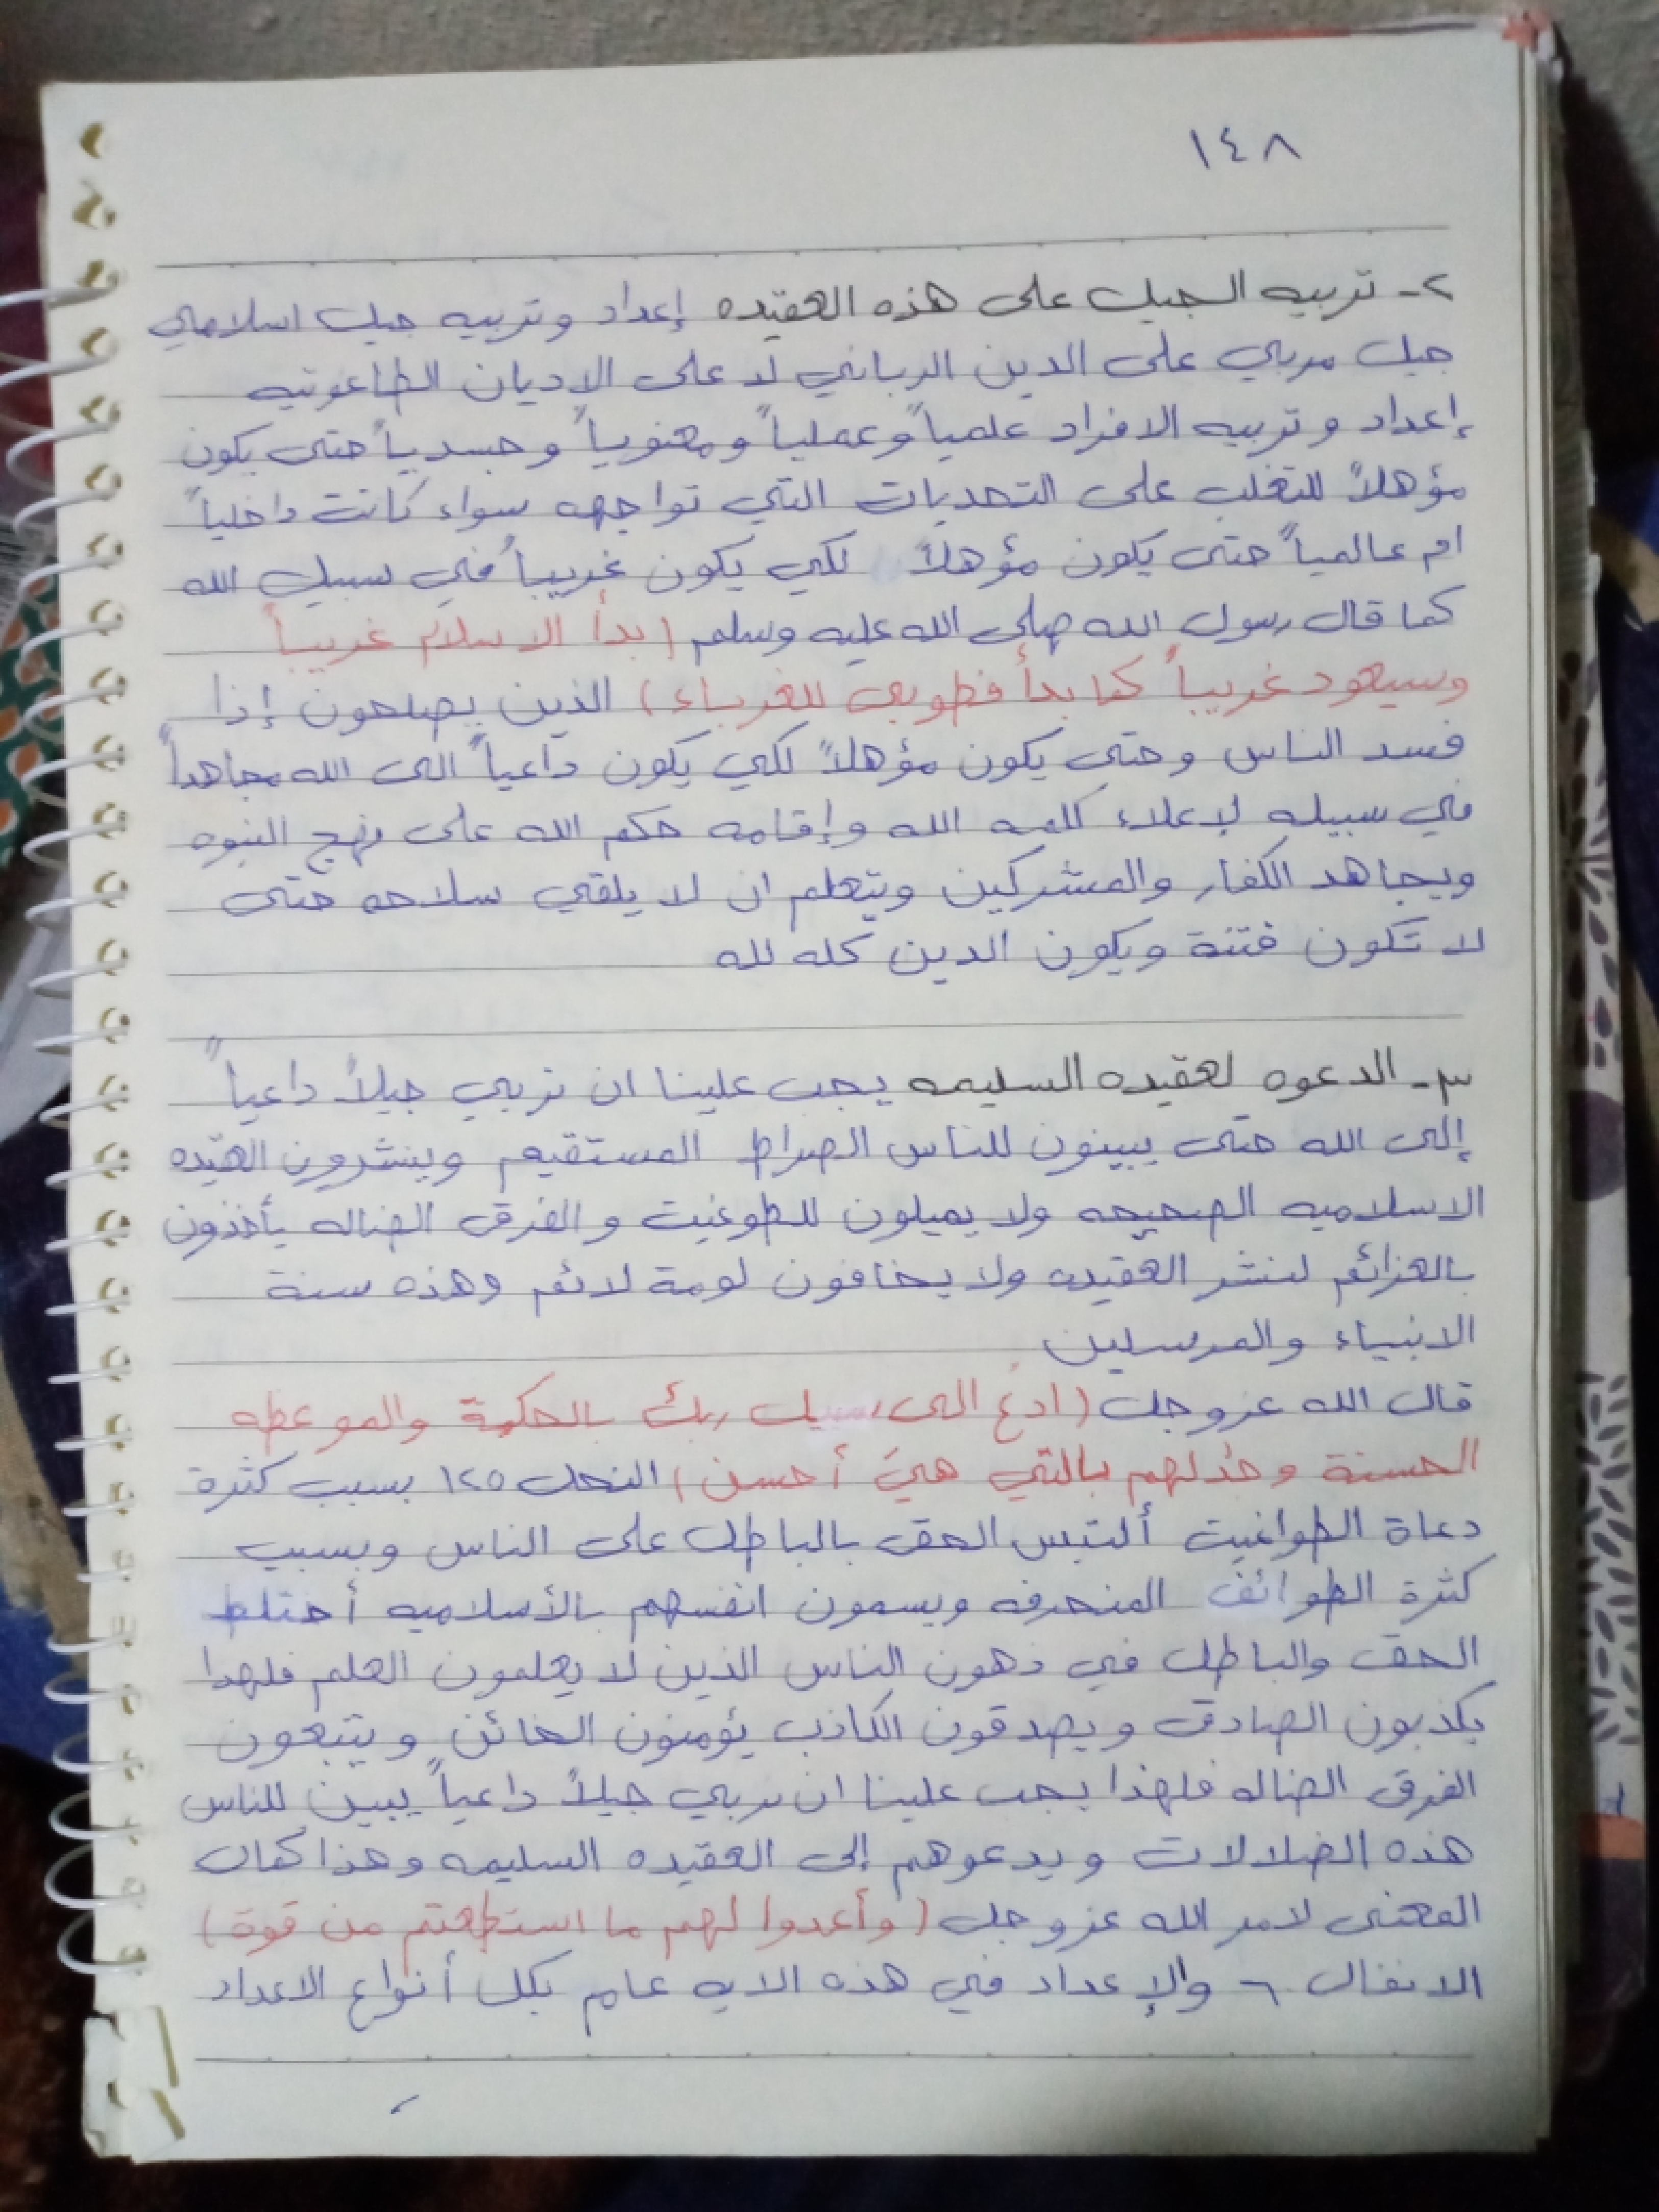 ١٤٨
٢- تربيه الجيل على هذه العقيده إعداد وتربيه جيل اسلامي
جيل مربي على الدين الرباني لا على الاديان الطاغوتيه
إعداد وتربيه الافراد علمياً وعملياً ومعنوياً وجسدياً حتى يكون
مؤهلاً للتغلب على التحديات التي تواجهه سواء كانت داخلياً
ام عالمياً حتى يكون مؤهلاً لكي يكون غريباً في سبيل الله
كما قال رسول الله صلى الله عليه وسلم (بدأ الاسلام غريباً
وسيعود غريباً كما بدأ فطوبى للغرباء) الذين يصلحون إذا
فسد الناس وحتى يكون مؤهلاً لكي يكون داعياً الى الله مجاهداً
في سبيله لإعلاء كلمه الله وإقامه حكم الله على نهج النبوه
ويجاهد الكفار والمشركين ويتعلم ان لا يلقي سلاحه حتى
لا تكون فتنة ويكون الدين كله لله
٣- الدعوه لعقيده السليمه يجب علينا ان نربي جيلاً داعياً
إلى الله حتى يبينون للناس الصراط المستقيم وينشرون العقيده
الاسلاميه الصحيحه ولا يميلون للطوغيت والفرق الضاله يأخذون
بالعزائم لنشر العقيده ولا يخافون لومة لائم وهذه سنة
الانبياء والمرسلين
قال الله عزوجل (ادعُ الى سبيل ربك بالحكمة والموعظه
الحسنة وجٰدلهم بالتي هيَ أحسن) النحل ١٢٥ بسبب كثرة
دعاة الطواغيت ألتبس الحق بالباطل على الناس وبسبب
كثرة الطوائف المنحرفه ويسمون انفسهم بالأسلاميه أختلط
الحق والباطل في ذهون الناس الذين لا يعلمون العلم فلهذا
يكذبون الصادق ويصدقون الكاذب يؤمنون الخائن ويتبعون
الفرق الضاله فلهذا يجب علينا ان نربي جيلاً داعياً يبين للناس
هذه الضلالات ويدعوهم إلى العقيده السليمه وهذا كمال
المعنى لامر الله عزوجل (وأعدوا لهم ما استطعتم من قوة)
الانفال ٦٠ والإعداد في هذه الايه عام بكل أنواع الاعداد